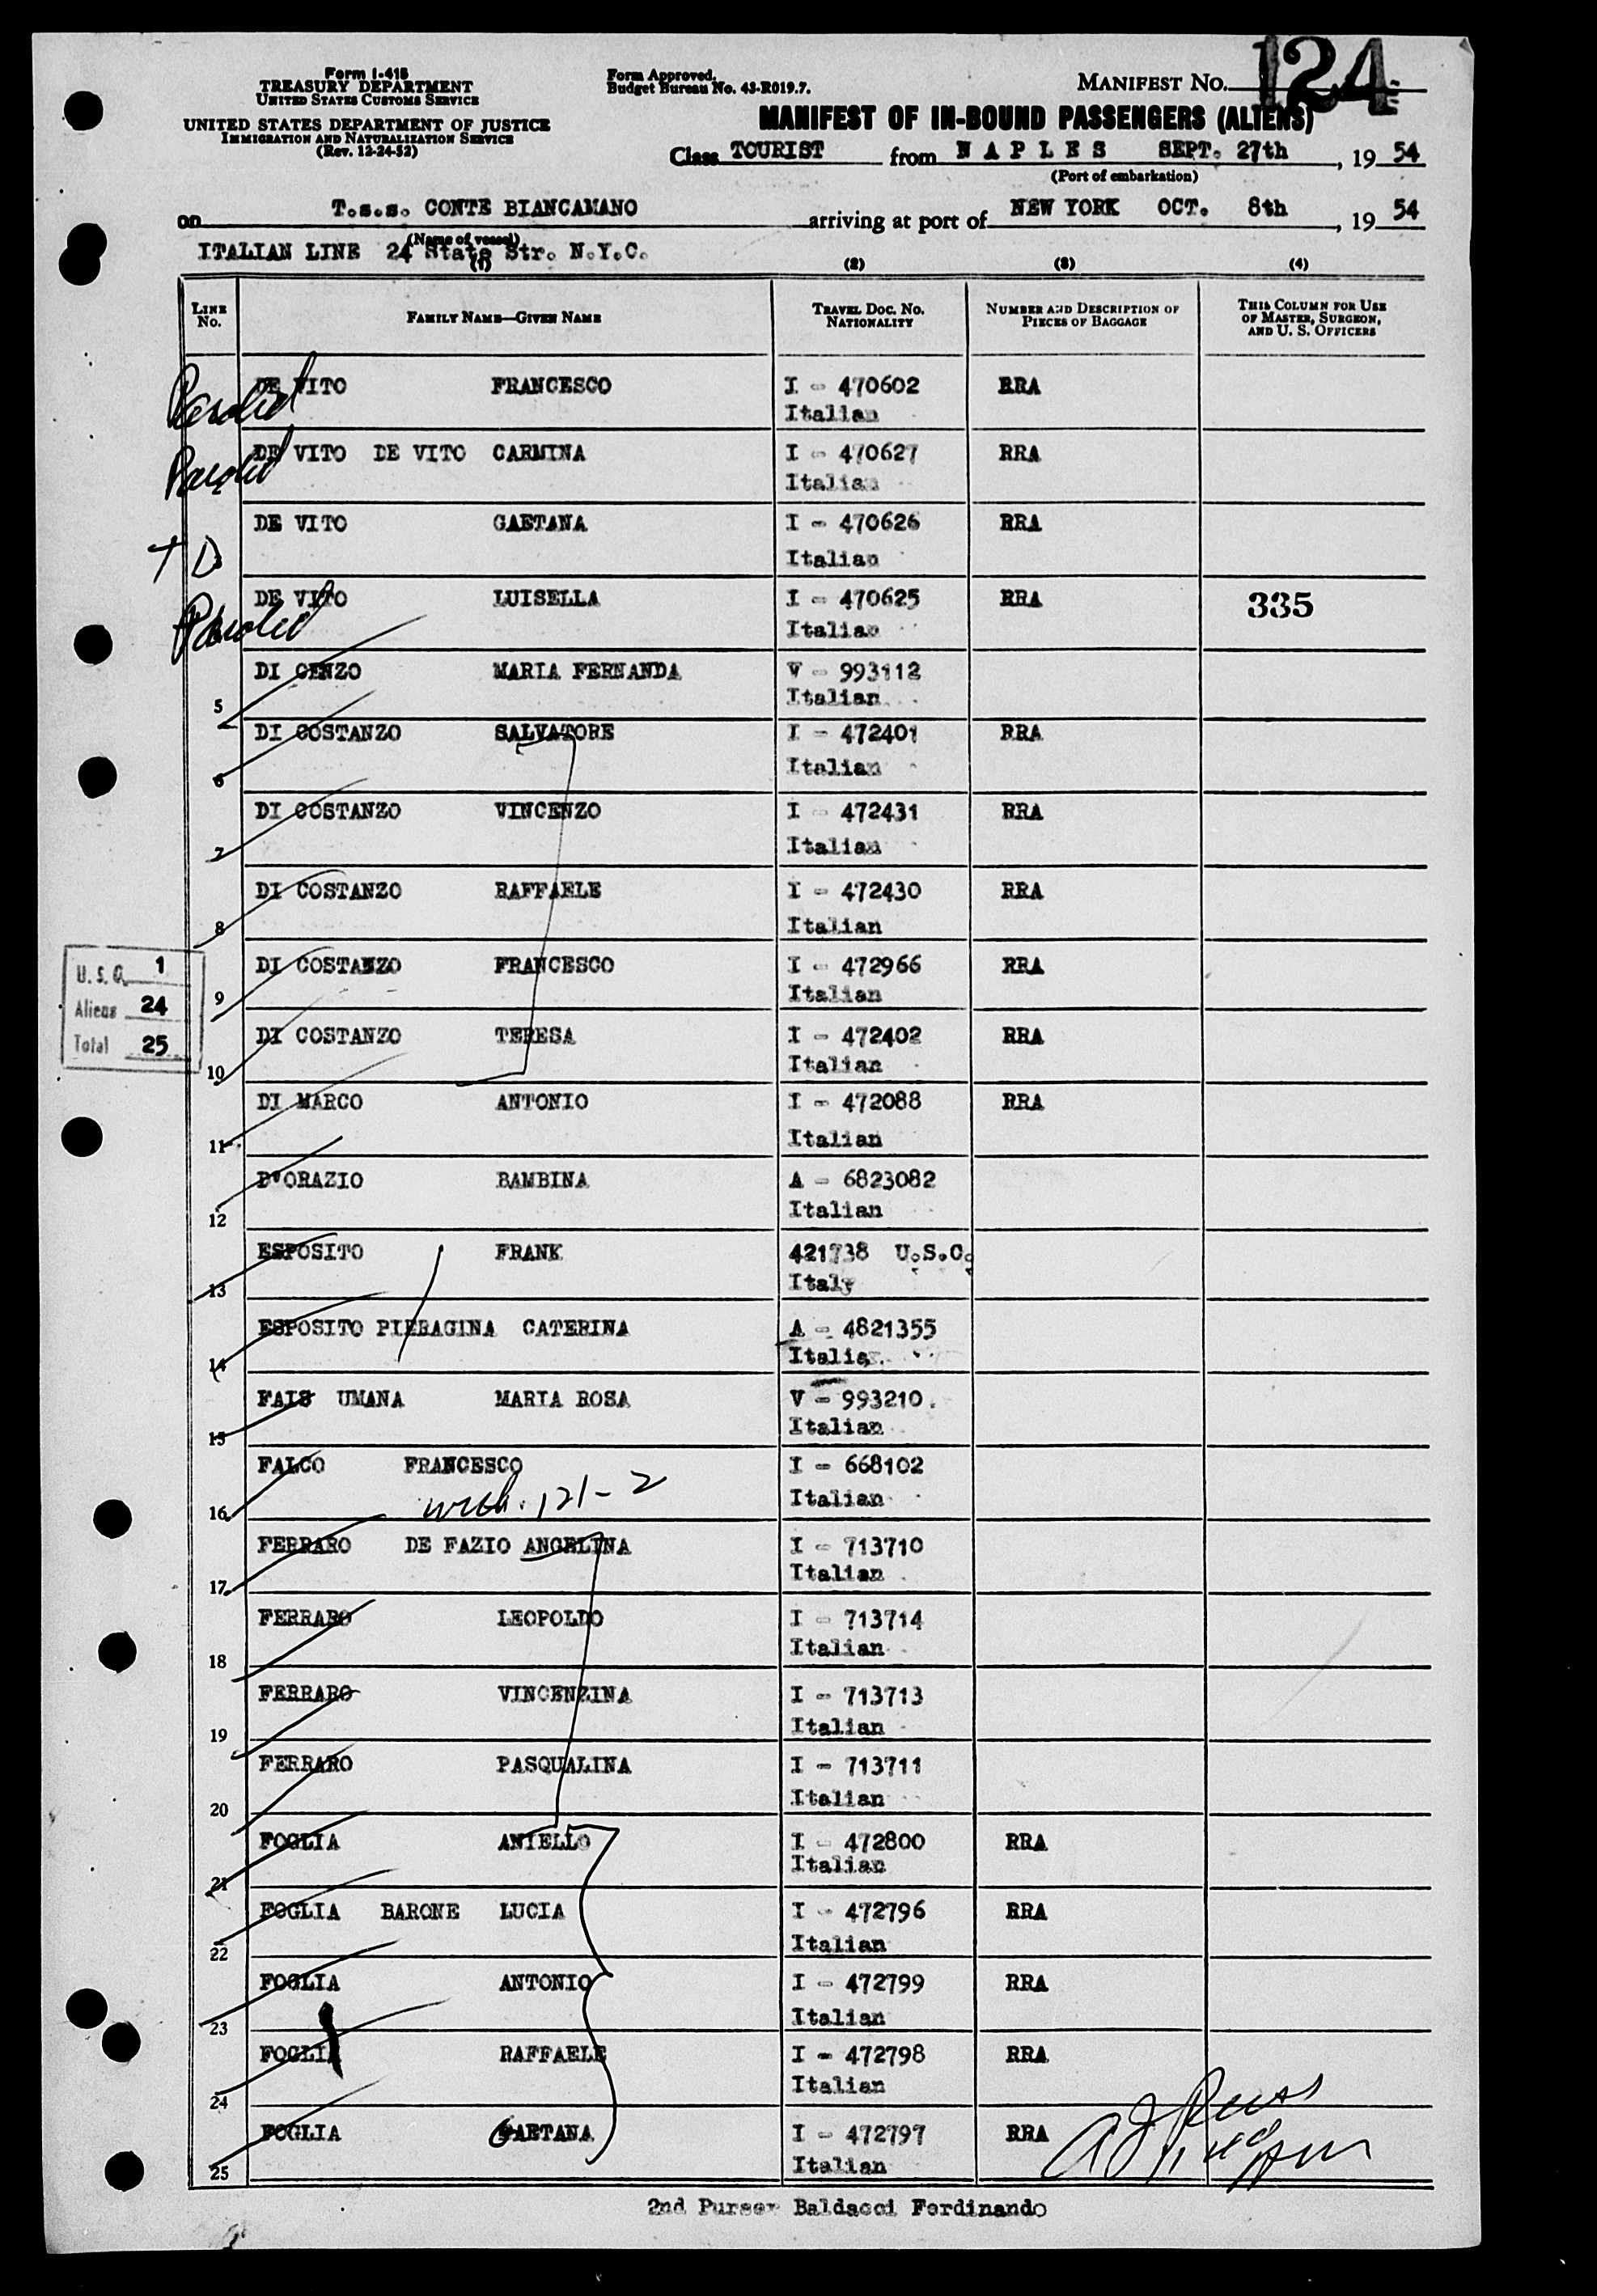 Form I-418
TREASURY DEPARTMENT
UNITED STATES CUSTOMS SERVICE
UNITED STATES DEPARTMENT OF JUSTICE
IMMIGRATION AND NATURALIZATION SERVICE
(Rev. 12-24-52)
Form Approved.
Budget Bureau No. 43-R019.7.
MANIFEST NO. 124
MANIFEST OF IN-BOUND PASSENGERS (ALIENS)
Class TOURIST from N A P L E S SEPT. 27th, 19 54
(Port of embarkation)
on T.s.s. CONTE BIANCAMANO arriving at port of NEW YORK OCT. 8th, 19 54
(Name of vessel)
ITALIAN LINE 24 State Str. N.Y.C.
(1) (2) (3) (4)
LINE No. FAMILY NAME—GIVEN NAME TRAVEL DOC. NO. NATIONALITY NUMBER AND DESCRIPTION OF PIECES OF BAGGAGE THIS COLUMN FOR USE OF MASTER, SURGEON, AND U. S. OFFICERS
Paroled DE VITO FRANCESCO I - 470602 RRA
Italian
Paroled DE VITO DE VITO CARMINA I - 470627 RRA
Italian
T D DE VITO GAETANA I - 470626 RRA
Italian
Paroled DE VITO LUISELLA I - 470625 RRA 335
Italian
DI CENZO MARIA FERNANDA V - 993112
5 Italian
DI COSTANZO SALVATORE I - 472401 RRA
6 Italian
DI COSTANZO VINCENZO I - 472431 RRA
7 Italian
DI COSTANZO RAFFAELE I - 472430 RRA
8 Italian
DI COSTANZO FRANCESCO I - 472966 RRA
9 Italian
DI COSTANZO TERESA I - 472402 RRA
10 Italian
U. S. C. 1
Aliens 24
Total 25
DI MARCO ANTONIO I - 472088 RRA
11 Italian
D'ORAZIO BAMBINA A - 6823082
12 Italian
ESPOSITO FRANK 421738 U.S.C.
13 Italy
ESPOSITO PIERAGINA CATERINA A - 4821355
14 Italia
FAIS UMANA MARIA ROSA V - 993210.
15 Italian
FALCO FRANCESCO I - 668102
16 with. 121-2 Italian
FERRARO DE FAZIO ANGELINA I - 713710
17 Italian
FERRARO LEOPOLDO I - 713714
18 Italian
FERRARO VINCENZINA I - 713713
19 Italian
FERRARO PASQUALINA I - 713711
20 Italian
FOGLIA ANIELLO I - 472800 RRA
21 Italian
FOGLIA BARONE LUCIA I - 472796 RRA
22 Italian
FOGLIA ANTONIO I - 472799 RRA
23 Italian
FOGLIA RAFFAELE I - 472798 RRA
24 Italian
FOGLIA GAETANA I - 472797 RRA
25 Italian
2nd Purser Baldacci Ferdinando